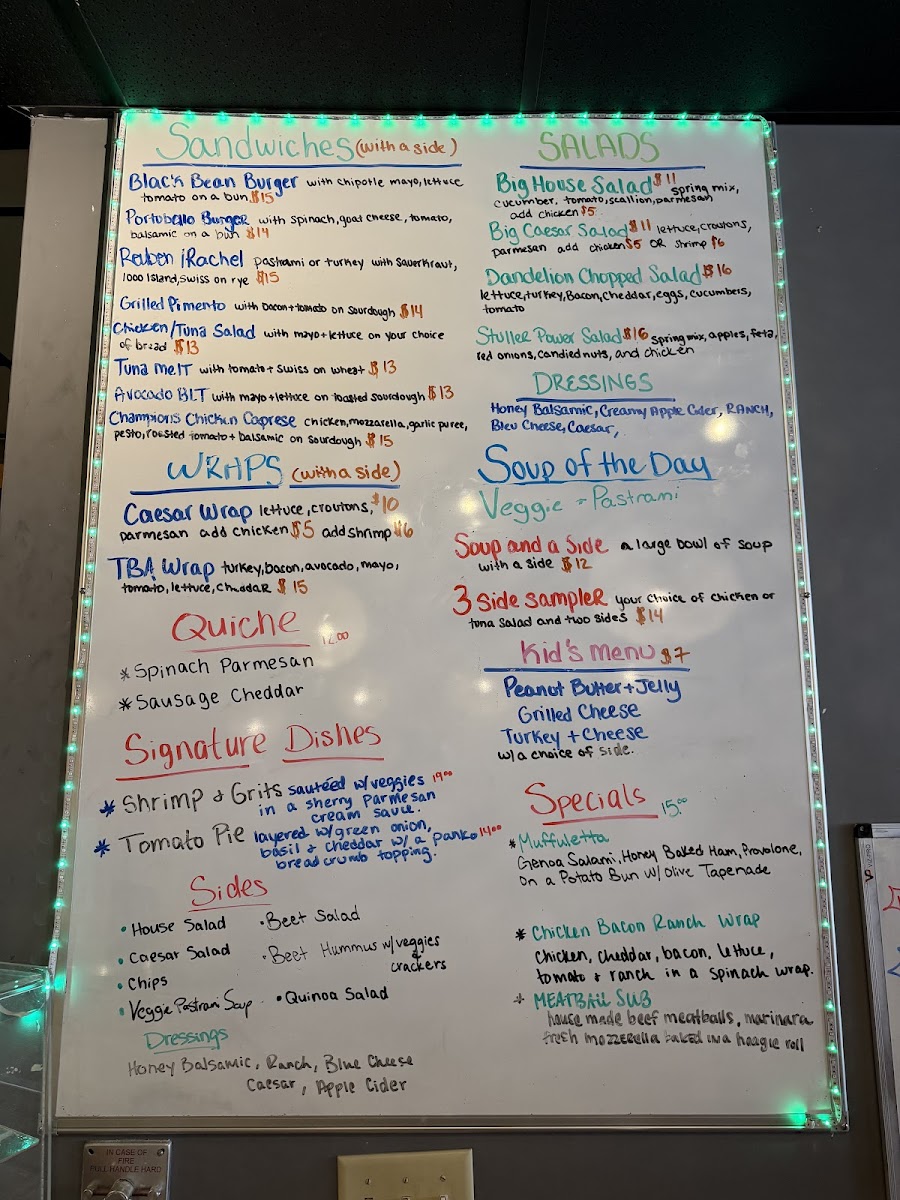 Sandwiches (with a side)
Black Bean Burger with chipotle mayo, lettuce
tomato on a bun $15
Portobello Burger with spinach, goat cheese, tomato,
balsamic on a bun $14
Reuben /Rachel pastrami or turkey with sauerkraut,
1000 Island, swiss on rye $15
Grilled Pimento with bacon + tomato on sourdough $14
Chicken/Tuna Salad with mayo + lettuce on your choice
of bread $13
Tuna melt with tomato + swiss on wheat $13
Avocado BLT with mayo + lettuce on toasted sourdough $13
Champions Chicken Caprese chicken, mozzarella, garlic puree,
pesto, roasted tomato + balsamic on sourdough $15
WRAPS (with a side)
Caesar Wrap lettuce, croutons, $10
parmesan add chicken $5 add shrimp $6
TBA Wrap turkey, bacon, avocado, mayo,
tomato, lettuce, cheddar $15
Quiche 12.00
* Spinach Parmesan
* Sausage Cheddar
Signature Dishes
* Shrimp & Grits sautéed w/veggies 19.00
in a sherry Parmesan
cream sauce.
* Tomato Pie layered w/green onion, 14.00
basil & cheddar w/ a panko
bread crumb topping.
Sides
• House Salad
• Caesar Salad
• Chips
• Veggie Pastrami Soup
• Beet Salad
• Beet Hummus w/veggies
& crackers
• Quinoa Salad
Dressings
Honey Balsamic, Ranch, Blue Cheese
Caesar, Apple Cider
SALADS
Big House Salad $11 spring mix,
cucumber, tomato, scallion, parmesan
add chicken $5
Big Caesar Salad $11 lettuce, croutons,
parmesan add chicken $5 OR shrimp $6
Dandelion Chopped Salad $16
lettuce, turkey, Bacon, cheddar, eggs, cucumbers,
tomato
Stuller Power Salad $16 spring mix, apples, feta,
red onions, candied nuts, and chicken
DRESSINGS
Honey Balsamic, Creamy Apple Cider, RANCH,
Bleu Cheese, Caesar,
Soup of the Day
Veggie - Pastrami
Soup and a Side a large bowl of soup
with a side $12
3 Side Sampler your choice of chicken or
tuna salad and two sides $14
Kid's Menu $7
Peanut Butter + Jelly
Grilled Cheese
Turkey + Cheese
w/ a choice of side.
Specials 15.00
* Muffuletta
Genoa Salami, Honey Baked Ham, Provolone,
On a Potato Bun w/ Olive Tapenade
* Chicken Bacon Ranch Wrap
Chicken, cheddar, bacon, lettuce,
tomato & ranch in a spinach wrap.
+ MEATBALL SUB
house made beef meatballs, marinara
fresh mozzerella baked in a hoagie roll
IN CASE OF
FIRE
PULL HANDLE HARD